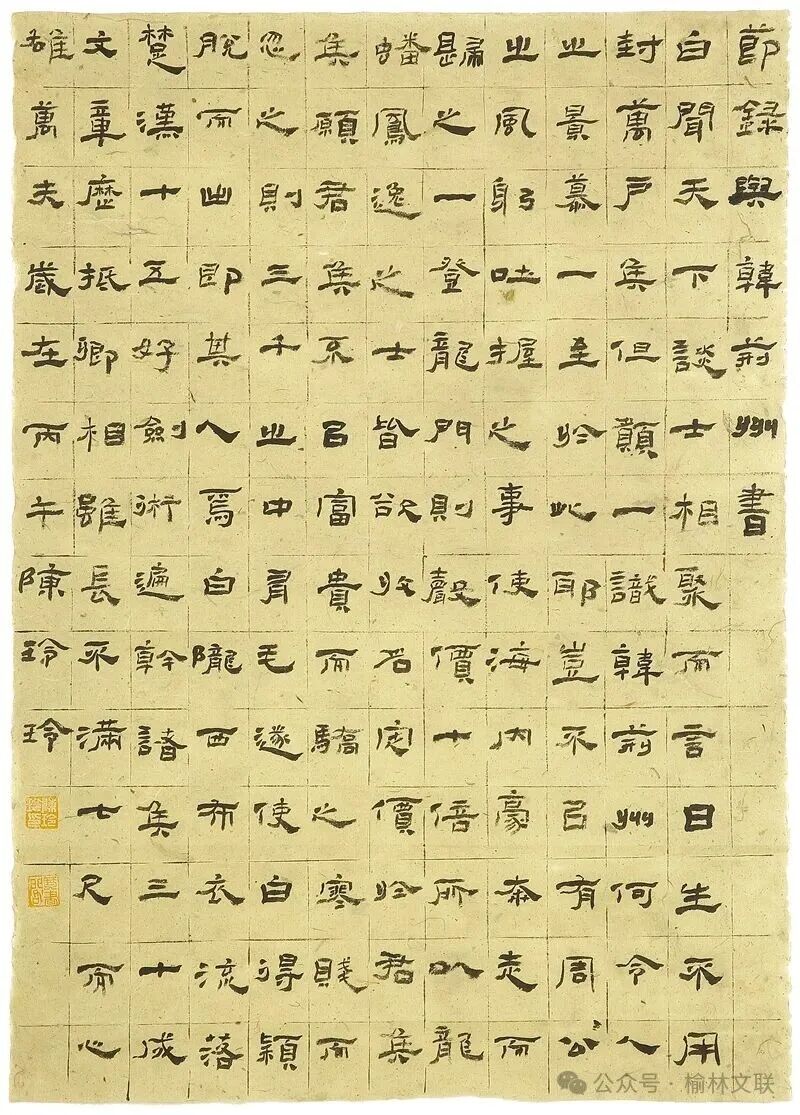 節録與韓荊州書
白聞天下談士相聚而言曰生不用
封萬戶侯但願一識韓荊州何令人
之景慕一至於此耶豈不以有周公
之風躬吐握之事使海內豪奔走而
歸之一登龍門則聲價十倍所以龍
蟠鳳逸之士皆欲收名定價於君侯
侯願君侯不以富貴而驕之寒賤而
忽之則三千之中有毛遂使白得穎
脫而出即其人焉白隴西布衣流落
楚漢十五好劍術遍幹諸侯三十成
文章歷抵卿相雖長不滿七尺而心
雄萬夫歲在丙午陳玲玲
公众号·榆林文联